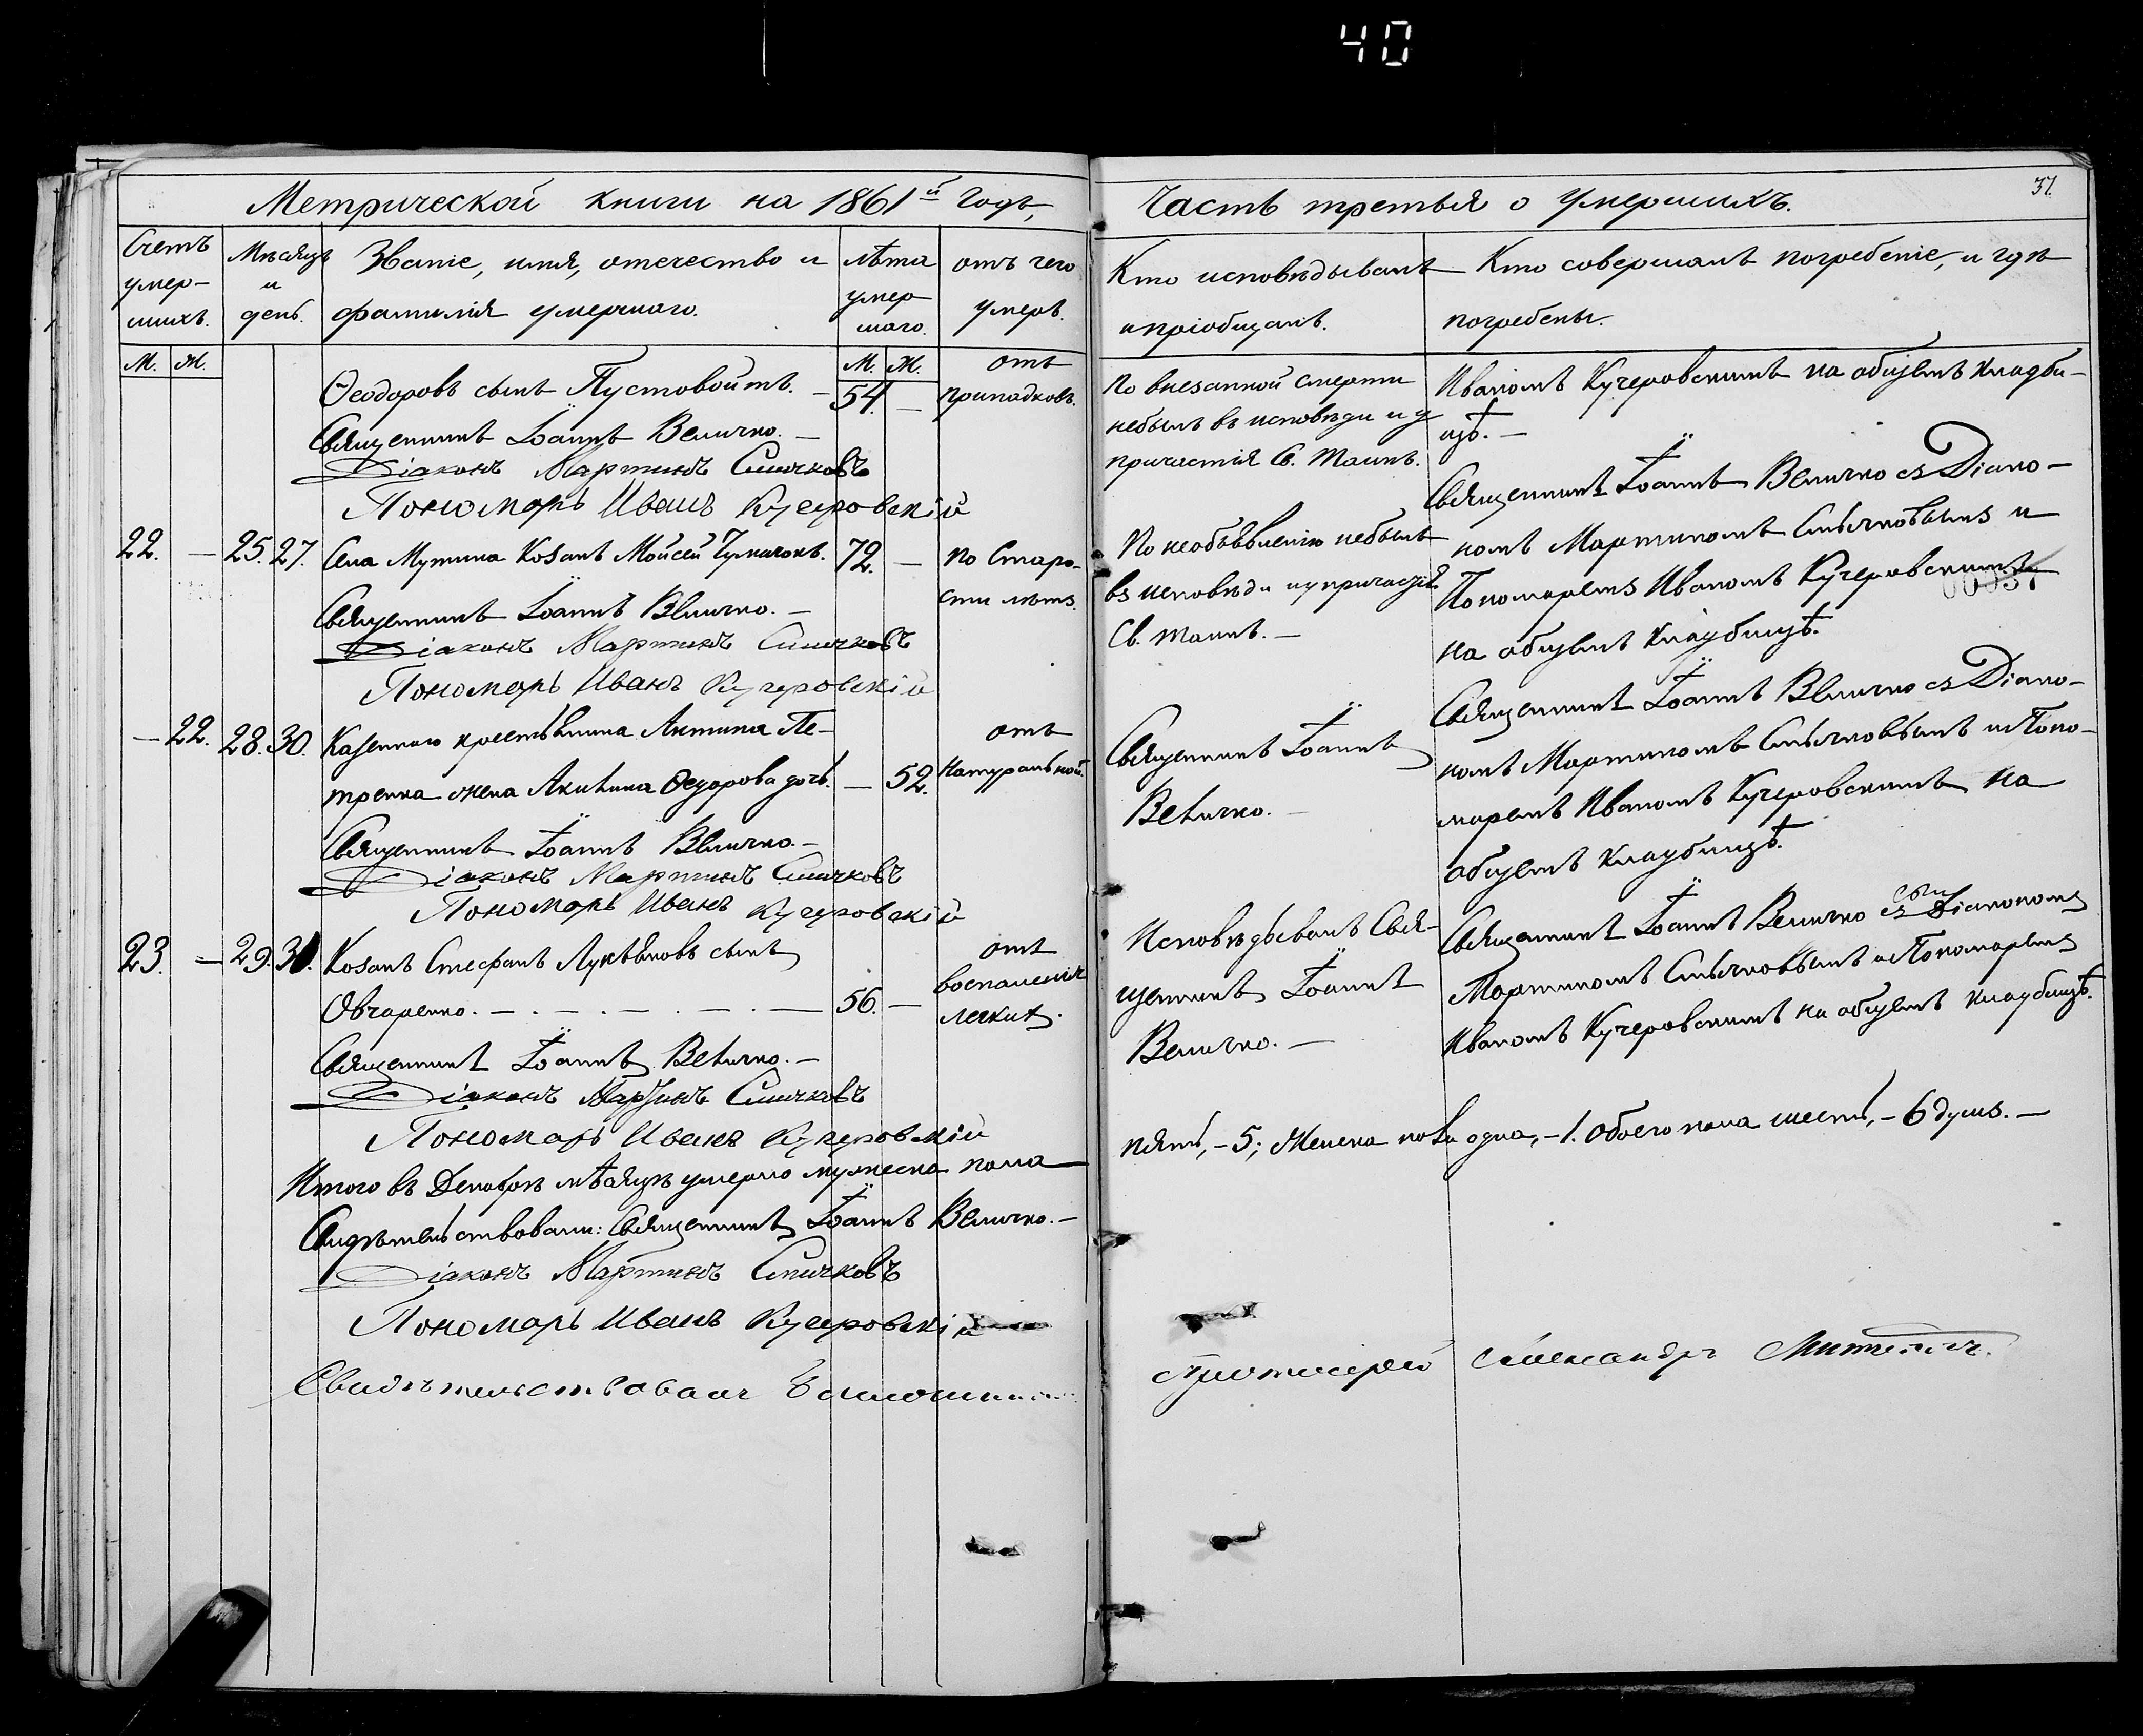 40
Метрической книги на 1861й годъ,
Счетъ умер-
шихъ.
Мѣсяцъ
и
день.
Званіе, имя, отечество и
фамилія умершаго.
лѣта
умер
шаго.
отъ чего
умеръ.
М. Ж.
М. Ж.
Ѳеодоровъ сынъ Пустовойтъ. —
54. —
отъ
припадковъ.
Священникъ Іоаннъ Величко. —
Діаконъ Мартинъ Смычковъ
Пономарь Иванъ Кучеровскій
22. — 25. 27. Села Мутина Козакъ Мойсей Чумачокъ. 72. — по Старо-
сти лѣтъ.
Священникъ Іоаннъ Величко. —
Діаконъ Мартинъ Смычковъ
Пономарь Иванъ Кучеровскій
— 22. 28. 30. Казеннаго крестьянина Антипа Пе-
тренка жена Акилина Ѳедорова дочь. — 52.
отъ
натуральной.
Священникъ Іоаннъ Величко. —
Діаконъ Мартинъ Смычковъ
Пономарь Иванъ Кучеровскій
23. — 29. 31. Козакъ Стефанъ Лукьяновъ сынъ
Овчаренко. — . — . — . — . — 56. —
отъ
воспаленія
легкихъ.
Священникъ Іоаннъ Величко. —
Діаконъ Мартинъ Смычковъ
Пономарь Иванъ Кучеровскій
Итого въ Декабрѣ мѣсяцѣ умерло мужеска пола
Свидѣтельствовали: Священникъ Іоаннъ Величко. —
Діаконъ Мартинъ Смычковъ
Пономарь Иванъ Кучеровскій
Свидѣтельствовалъ
Часть третья о умершихъ.
37.
Кто исповѣдывалъ
и пріобщалъ.
Кто совершалъ погребеніе, и гдѣ
погребены.
По внезапной смерти
небылъ въ исповѣди и у
причастія Св. Таинъ.
Иваномъ Кучеровскимъ на общемъ кладби-
щѣ. —
По необъявленію небылъ
въ исповѣди и у причастія
Св. таинъ. —
Священникъ Іоаннъ Величко съ Діако-
номъ Мартиномъ Смычковымъ и
Пономаремъ Иваномъ Кучеровскимъ
00037
на общемъ кладбищѣ.
Священникъ Іоаннъ
Величко. —
Священникъ Іоаннъ Величко съ Діако-
номъ Мартиномъ Смычковымъ и Поно-
маремъ Иваномъ Кучеровскимъ на
общемъ кладбищѣ.
Исповѣдывалъ Свя-
щенникъ Іоаннъ
Величко. —
Священникъ Іоаннъ Величко съ Діакономъ
Мартиномъ Смычковымъ и Пономаремъ
Иваномъ Кучеровскимъ на общемъ кладбищѣ.
пять, — 5; Женска пола одна, — 1. Обоего пола шесть, — 6 душъ. —
Протоіерей Александръ